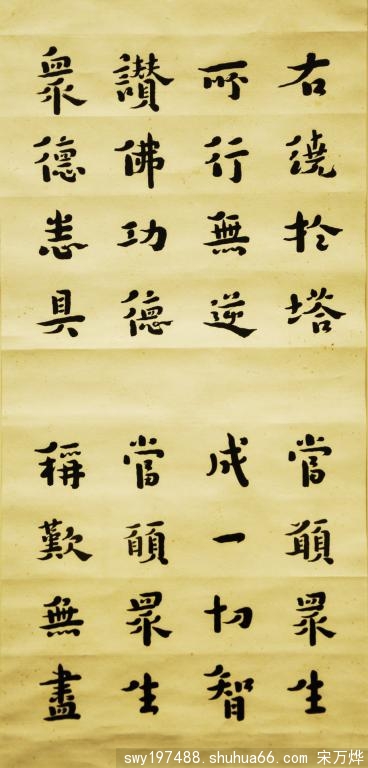 右繞於塔 當願眾生
所行無逆 成一切智
讚佛功德 當願眾生
眾德悉具 稱歎無盡
swy197488.shuhua66.com 宋万烨